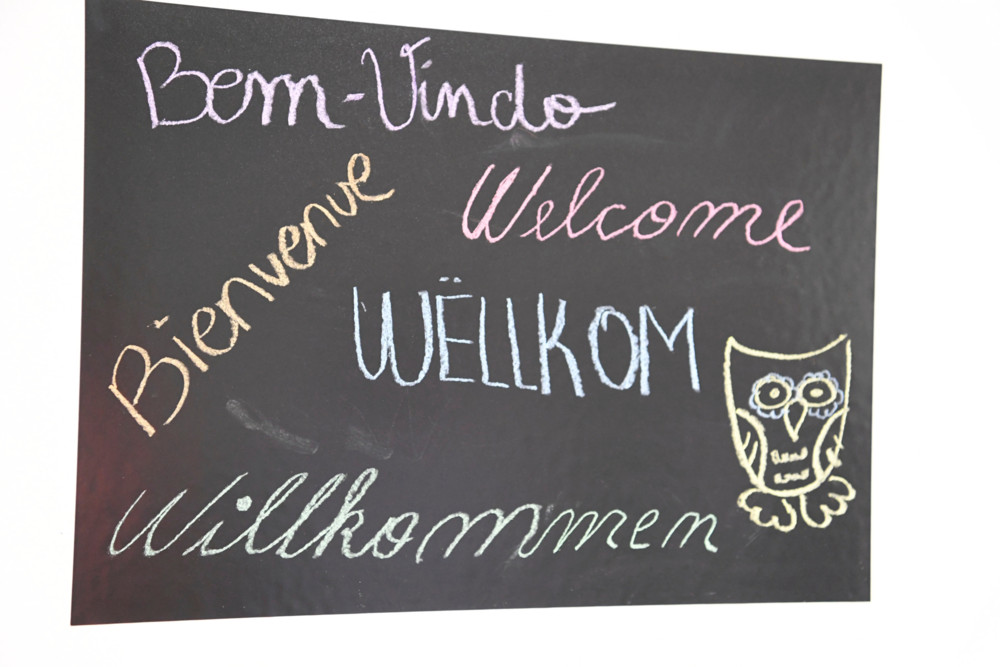 Bem-Vindo
Welcome
Bienvenue
WËLLKOM
Willkommen